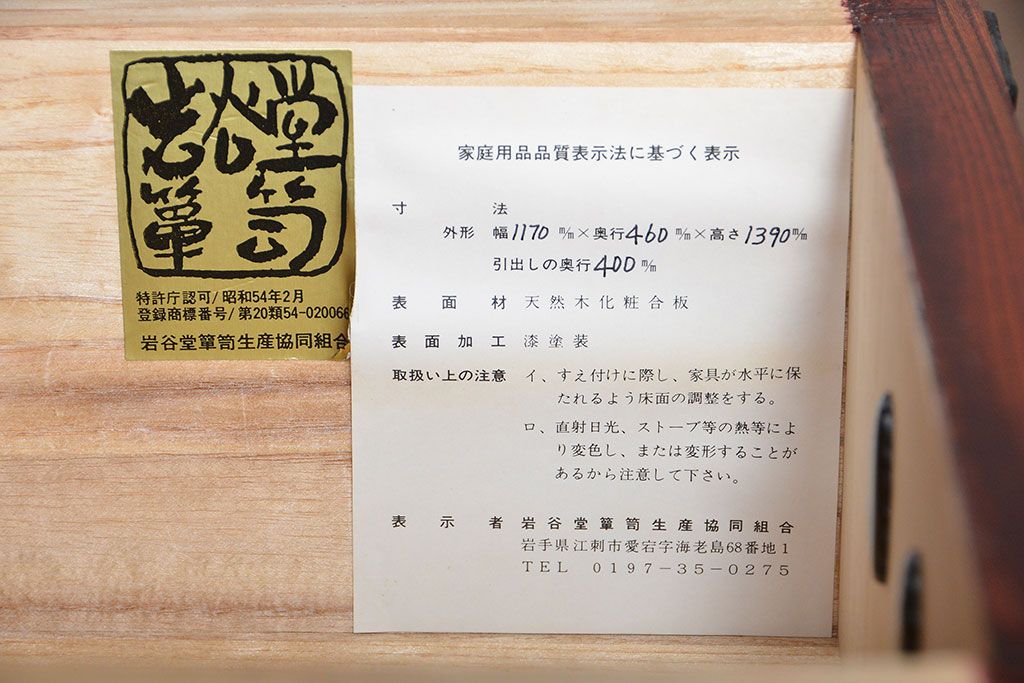 岩谷堂
簞笥
特許庁認可/昭和54年2月
登録商標番号/第20類54-020066
岩谷堂簞笥生産協同組合
家庭用品品質表示法に基づく表示
寸法
外形 幅1170 m/m×奥行460 m/m×高さ1390m/m
引出しの奥行400 m/m
表面材 天然木化粧合板
表面加工 漆塗装
取扱い上の注意 イ、すえ付けに際し、家具が水平に保
たれるよう床面の調整をする。
ロ、直射日光、ストーブ等の熱等によ
り変色し、または変形することが
あるから注意して下さい。
表示者 岩谷堂簞笥生産協同組合
岩手県江刺市愛宕字海老島68番地1
TEL 0197-35-0275